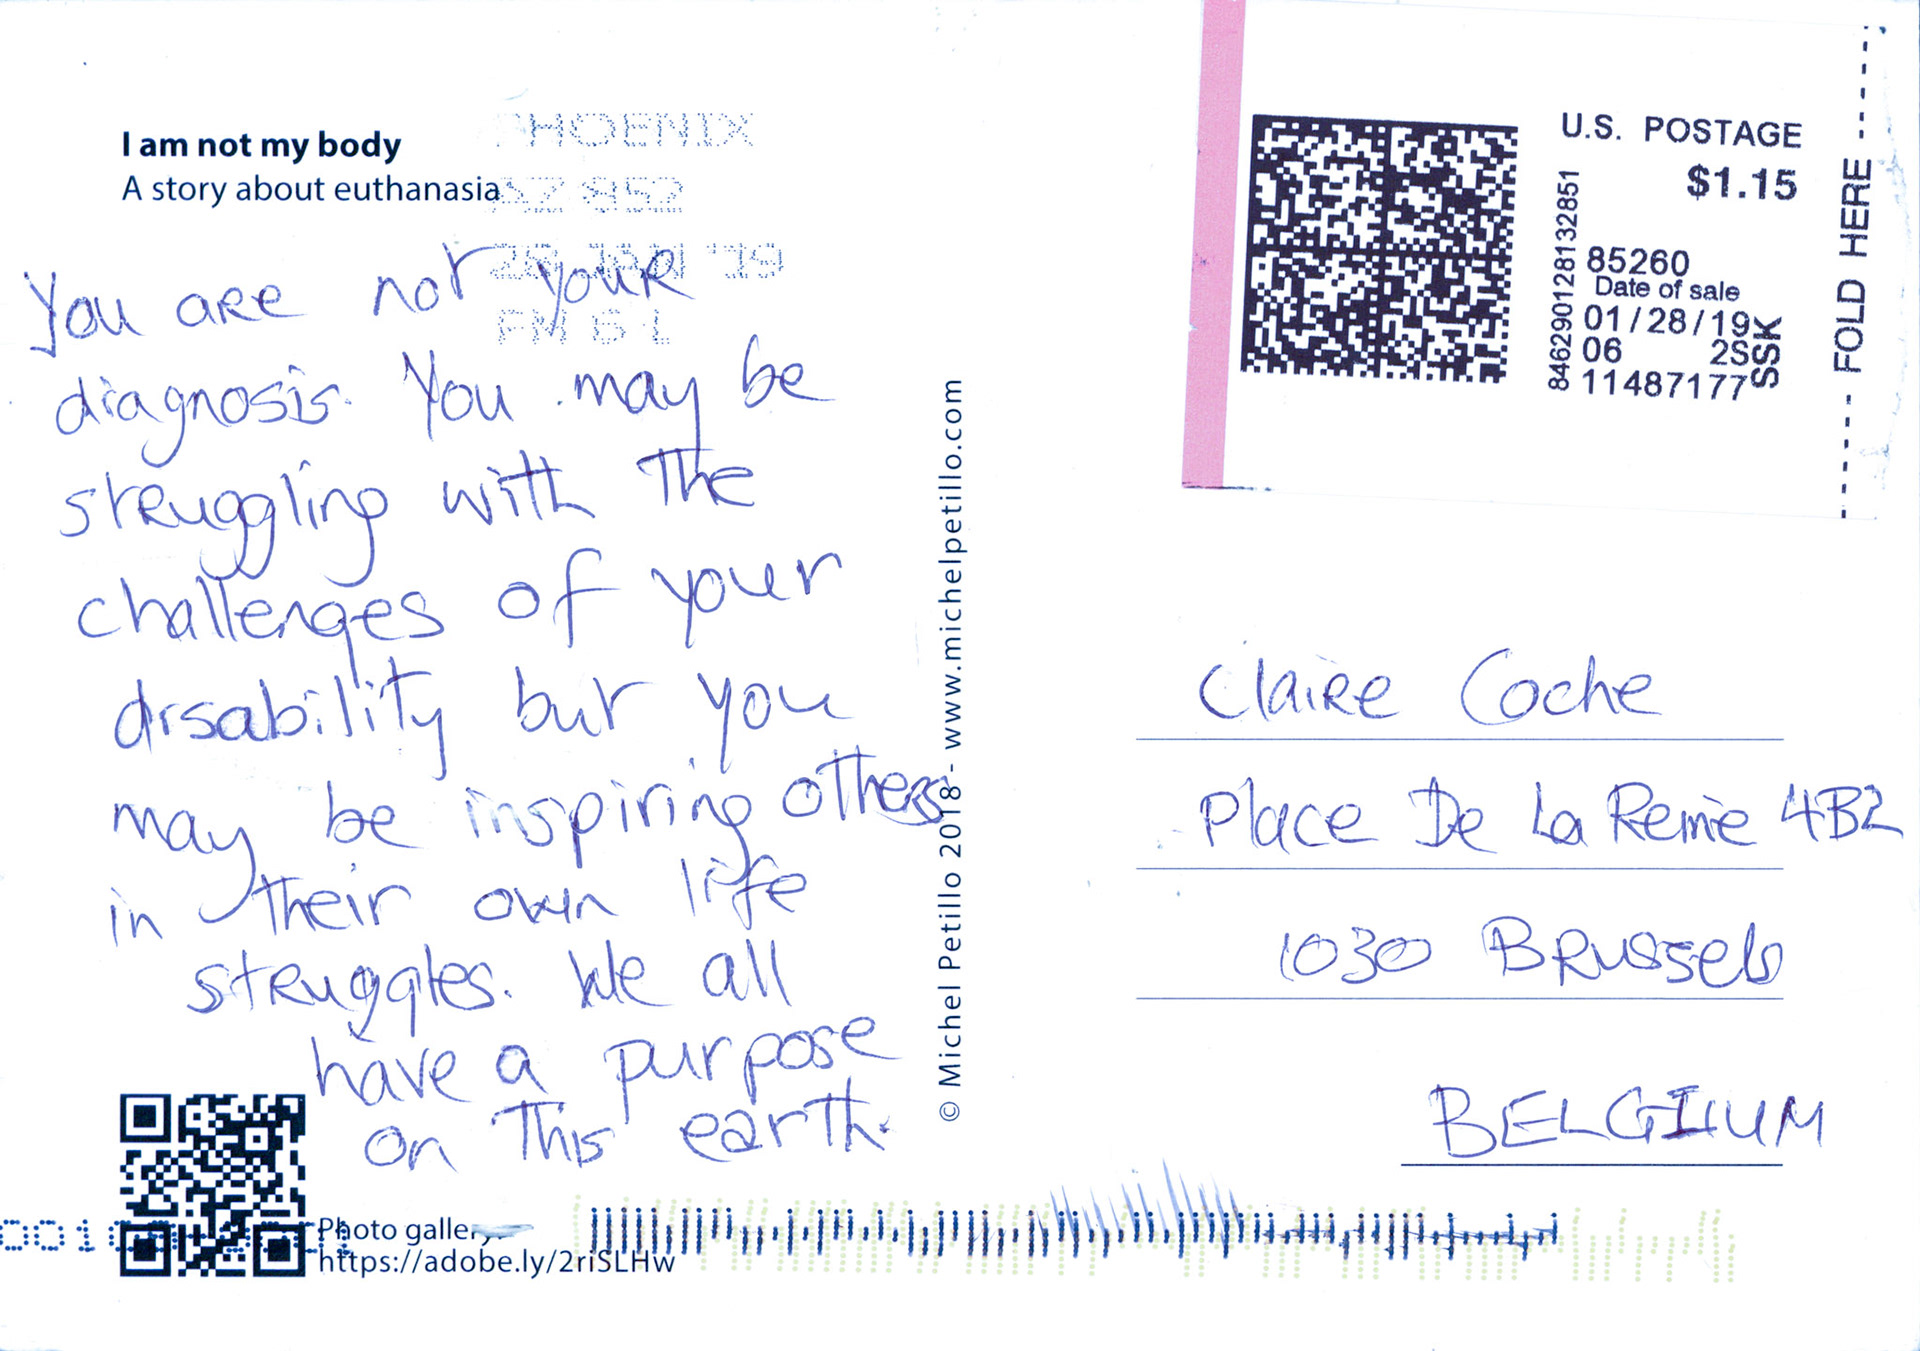 I am not my body
A story about euthanasia
PHOENIX
AZ 852
JAN '19
PM 5 L
You are not your
diagnosis. You may be
struggling with the
challenges of your
disability but you
may be inspiring others
in their own life
struggles. We all
have a purpose
on this earth.
Photo gallery:
https://adobe.ly/2riSLHw
© Michel Petillo 2018 - www.michelpetillo.com
U.S. POSTAGE
$1.15
846290128132851
85260
Date of sale
01/28/19
06 2S
11487177
SSK
FOLD HERE
Claire Coche
Place De La Reine 4B2
1030 Brussels
BELGIUM